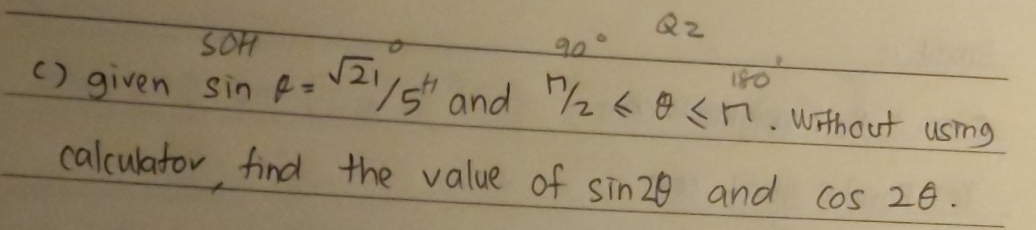 SOH O 90° Q2
c) given sin θ = √21/5 H and π/2 ≤ θ ≤ π 180°. Without using
calculator, find the value of sin2θ and cos 2θ.